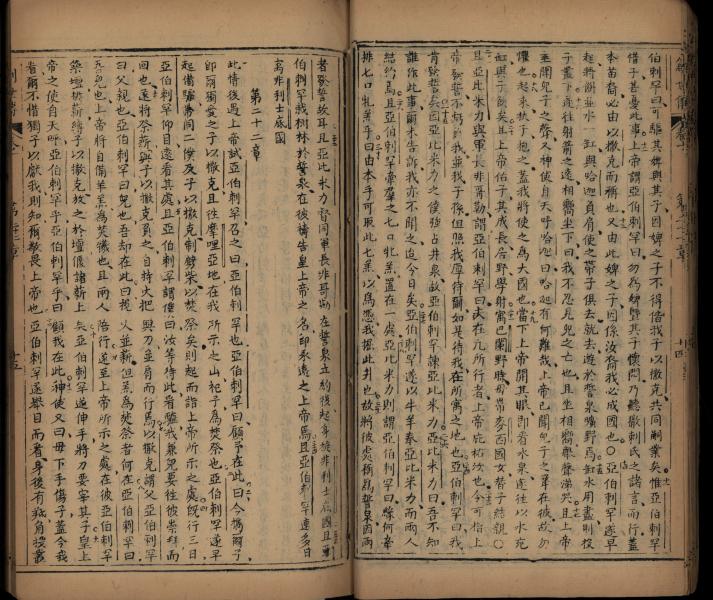 伯剌罕曰可驅其婢與其子因婢之子不得偕我子以撒克共同嗣業矣惟亞伯剌罕
借子甚憂此事上帝謂亞伯剌罕曰勿為婢暨其子懷悶乃聽撒剌氏之諸言而行蓋
本苗裔必由以撒克而稱也又由此婢之子因係汝裔我必成國也〇亞伯剌罕遂早
起將餅並水一缸與哈迦負肩使之帶子俱去就去遊於誓泉曠野焉缸水用盡則投
子叢下遠往射箭之遠相嚮坐下曰我不忍見兒之亡也且坐相嚮舉聲涕哭且上帝
垂聞兒子之聲又神使自天呼哈迦曰哈迦有何難哉上帝已聞兒子之聲在彼故勿
懼也起來扶子抱之蓋我將使之為大國也當下上帝開其眼即看水泉遂往以水充
缸與子飲矣且上帝佑子其成長居野學射寓巴蘭野時母帶麥西國女替子結親〇
且亞比米力與軍長非哥勒謂亞伯剌罕曰夫在凡所行者上帝庇祐汝也今可指上
帝發誓不我並我子孫但照我厚待爾如是待我在所寓之地也亞伯剌罕曰我
肯發誓矣因亞比米力之僕強占井泉故亞伯剌罕諫亞比米力亞比米力曰吾不知
誰作此事爾未告訴我亦不聞之迄今日矣亞伯剌罕遂以牛羊奉亞比米力而兩人
結約焉且亞伯剌罕帶羣之七口牝羔置在一處亞比米力則謂亞伯剌罕曰緣何牽
排七口牝羔乎曰由本手可取此七羔以為憑我掘此井也故將彼處稱為誓泉因兩
者發誓故耳且亞比米力暨同軍長非哥勒在誓泉立約後起身旋非利士底國且亞
伯剌罕栽樹林於誓泉在彼禱告皇上帝之名即永遠之上帝焉且亞伯剌罕達多日
寓非利士底國
第二十二章
此情後遇上帝試亞伯剌罕召之曰亞伯剌罕也亞伯剌罕曰顧予在此曰今攜爾子
即爾獨愛之子以撒克且往摩哩亞地在我所示之山祀子為焚祭也亞伯剌罕遂早
起備驢帶同二僕及子以撒克剖劈柴以焚祭矣則起而詣上帝所示之處既行三日
亞伯剌罕仰目遠看其處且亞伯剌罕謂僕曰汝等待此看驢我兼兒要往彼崇拜而
回也遂將祭薪與子以撒克負之自持火把與刀並肩而行焉以撒克謂父亞伯剌罕
曰父親也亞伯剌罕曰兒也吾却在此曰視火並薪但羔為焚祭者何在亞伯剌罕曰
吾兒也上帝將自備羊羔為焚犧也且兩人陪行遂至上帝所示之處在彼亞伯剌罕
築壇排薪縛子以撒克放之於壇偃諸薪上矣亞伯剌罕遂伸手將刀要宰其子皇上
帝之使自天呼亞伯剌罕乎亞伯剌罕乎曰顧我在此神使又曰毋下手傷子蓋今我
看爾不惜獨子以獻我則知爾敬畏上帝也亞伯剌罕遂舉目而看身後有羝角接叢